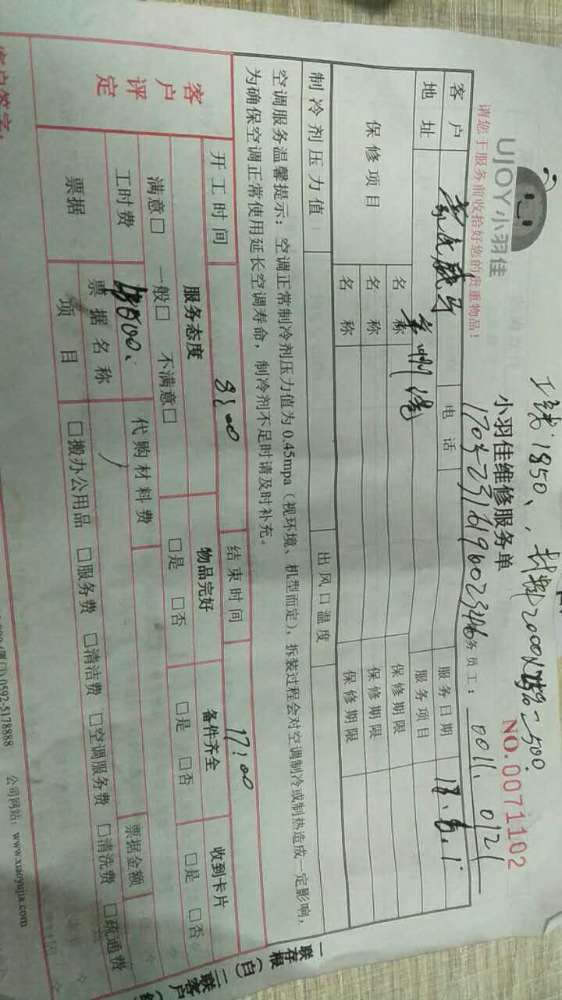 工钱:1850、,材料2000
UJOY小羽佳
小羽佳维修服务单
NO.0071102
请您于服务前收拾好您的贵重物品!
务员工: 0011. 0121
客户
电话
服务日期
18.6.1
地址
服务项目
保修项目
名称
保修期限
名称
保修期限
名称
保修期限
制冷剂压力值
出风口温度
空调服务温馨提示:空调正常制冷剂压力值为0.45mpa(视环境、机型而定),拆装过程会对空调制冷或制热造成一定影响,
为确保空调正常使用延长空调寿命,制冷剂不足时请及时补充。
开工时间
8:00
结束时间
17:00
客户评定
服务态度
物品完好
备件齐全
收到卡片
满意□ 一般□ 不满意□
□是 □否
□是 □否
□是 □否
工时费
代购材料费
票据金额
票据
票据名称
项目
□搬办公用品 □服务费 □清洁费 □空调服务费 □清洗费 □疏通费
客户签字:
0592-5178888
公司网站:www.xiaoyujia.com
一联存根(白) 二联客户